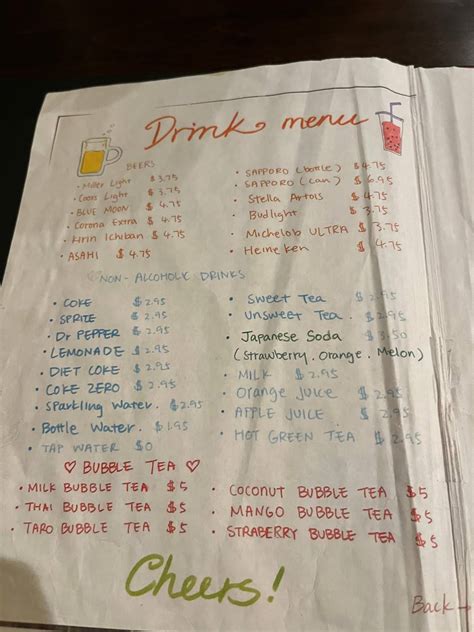 Drink menu
BEERS
• Miller Light $3.75
• Coors Light $3.75
• BLUE MOON $4.75
• Corona Extra $4.75
• Kirin Ichiban $4.75
• ASAHI $4.75
• SAPPORO (bottle) $4.75
• SAPPORO (can) $6.95
• Stella Artois $4.75
• Budlight $3.75
• Michelob ULTRA $3.75
• Heineken $4.75
NON-ALCOHOLIC DRINKS
• COKE $2.95
• SPRITE $2.95
• Dr PEPPER $2.95
• LEMONADE $2.95
• DIET COKE $2.95
• COKE ZERO $2.95
• Sparkling Water. $2.95
• Bottle Water. $1.95
• TAP WATER $0
• SWEET TEA $2.95
• UNSWEET TEA $2.95
• Japanese Soda $3.50
(Strawberry. Orange. Melon)
• MILK $2.95
• Orange JUICE $2.95
• APPLE JUICE $2.95
• HOT GREEN TEA $2.95
♡ BUBBLE TEA ♡
• MILK BUBBLE TEA $5
• THAI BUBBLE TEA $5
• TARO BUBBLE TEA $5
• COCONUT BUBBLE TEA $5
• MANGO BUBBLE TEA $5
• STRABERRY BUBBLE TEA $5
Cheers!
Back →